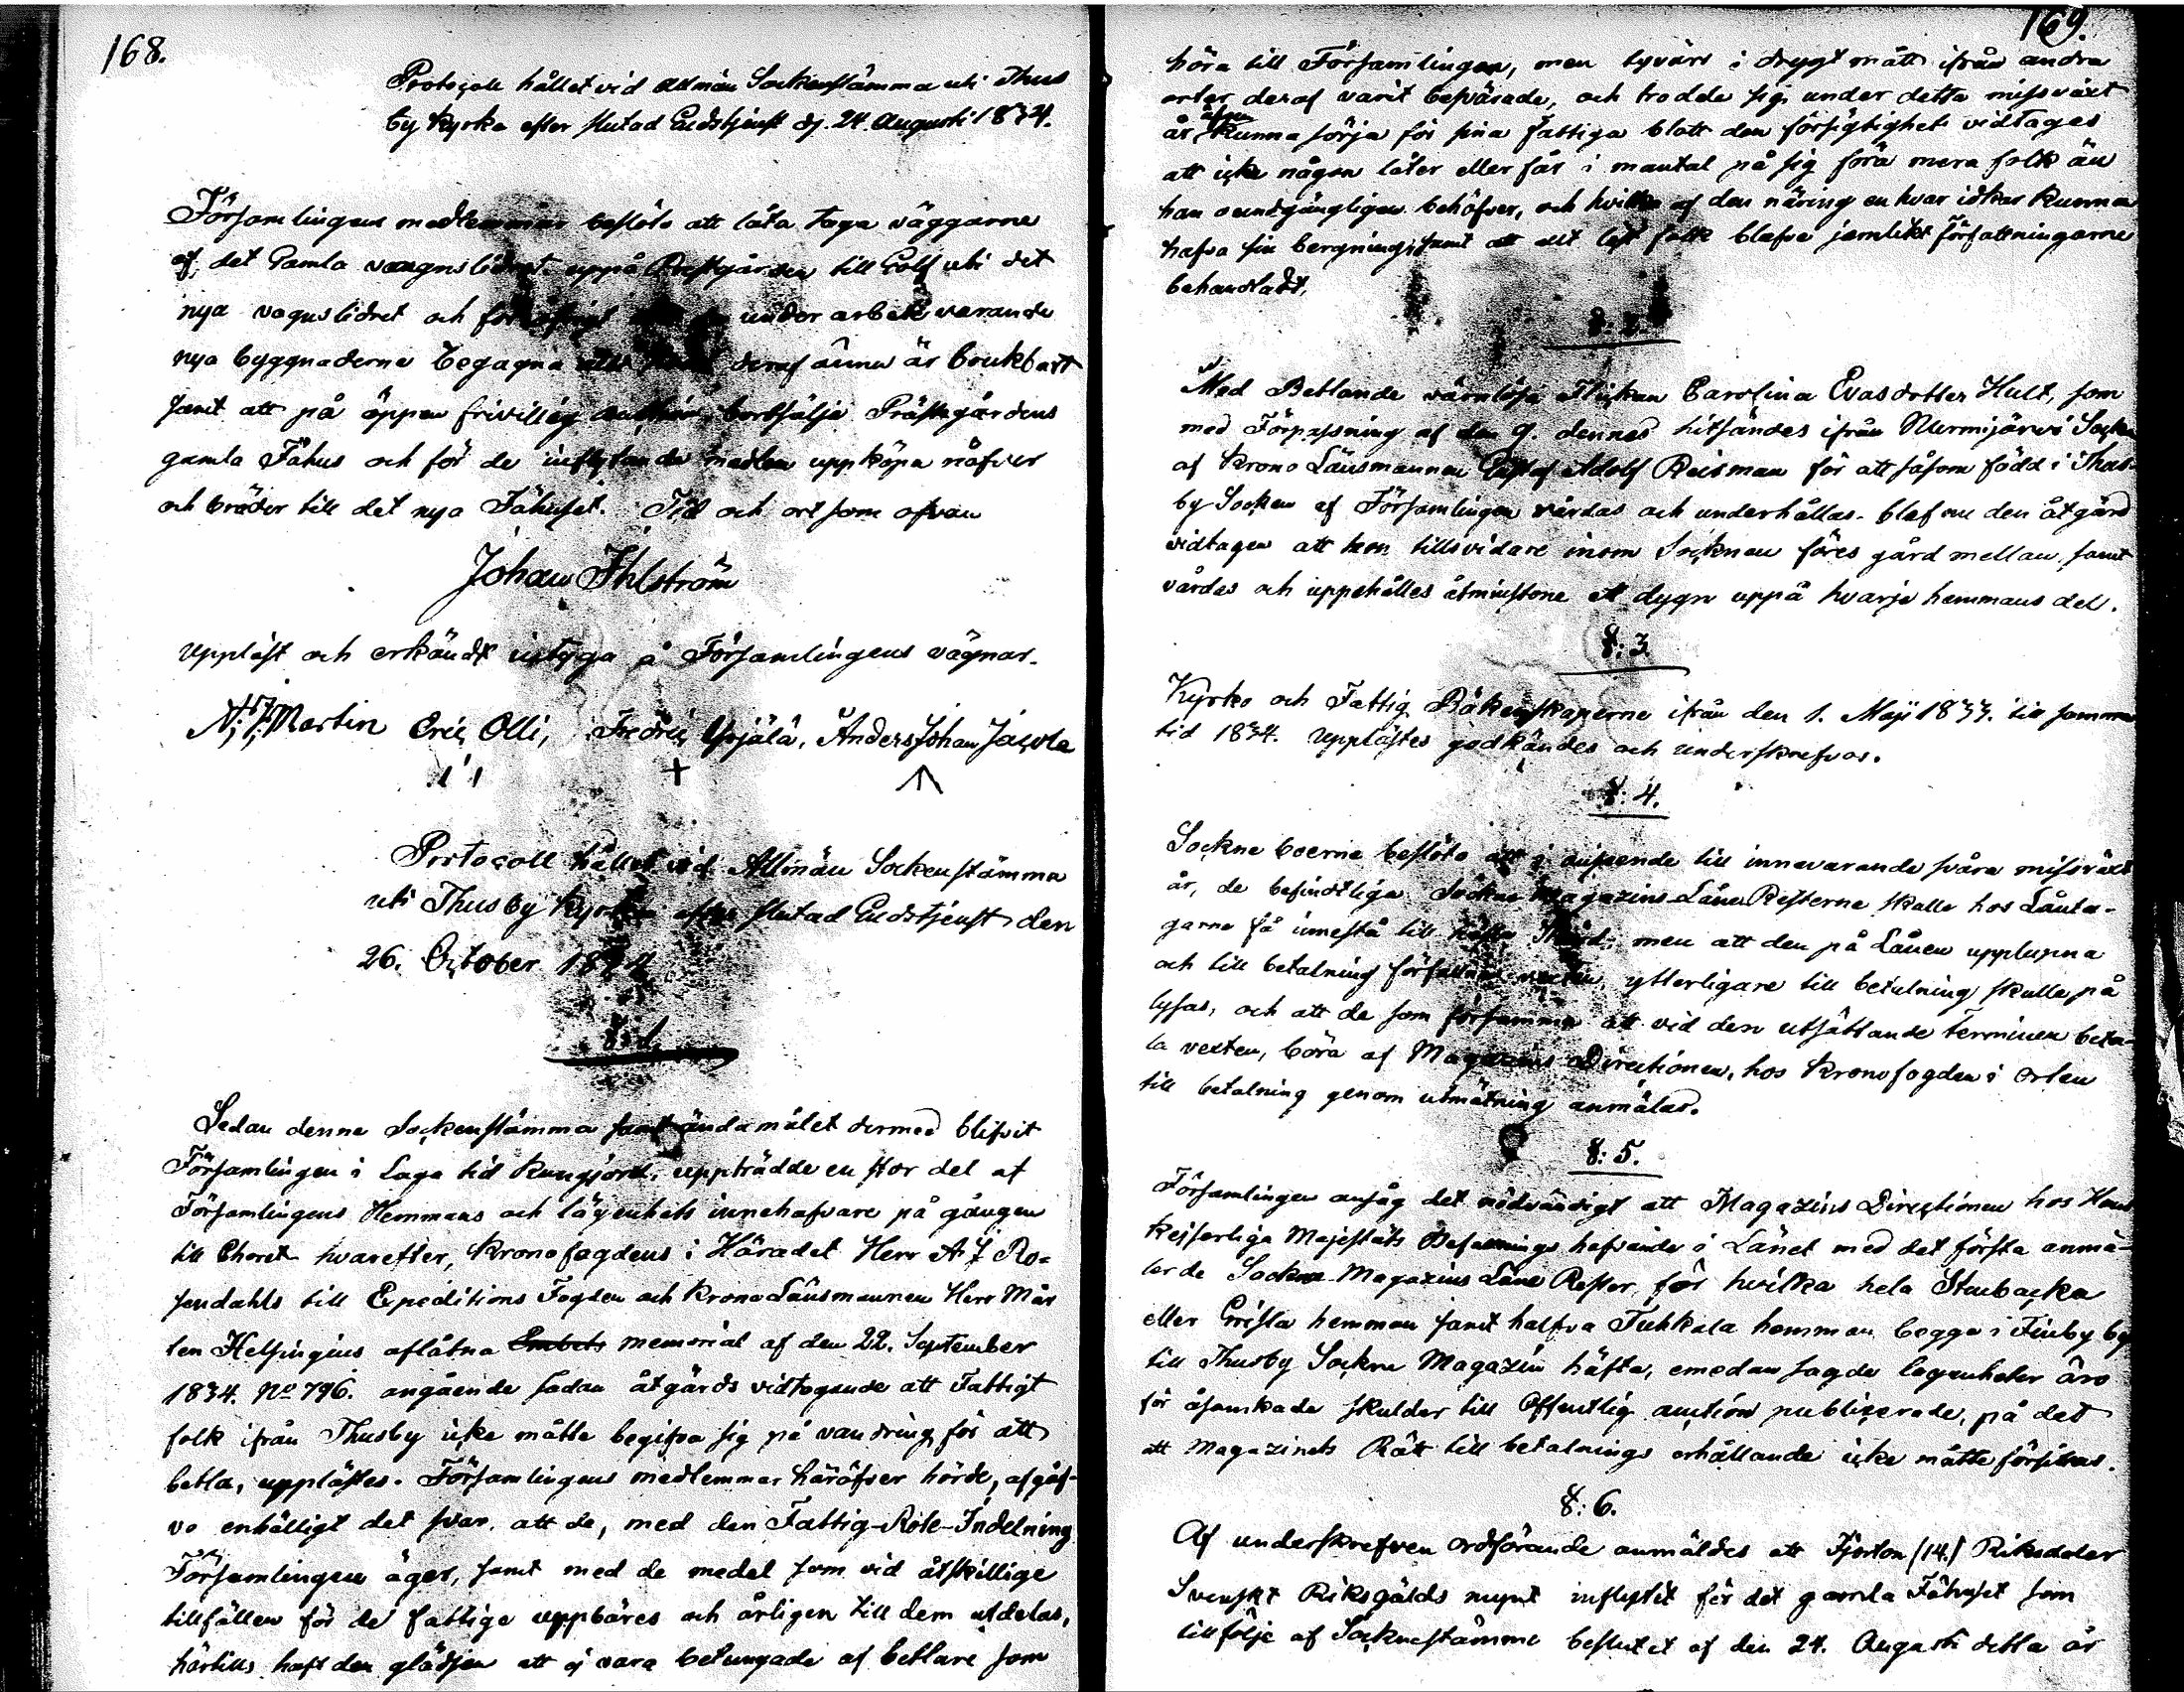 168.
Protocoll hållet vid Allmän Sockenstämma uti Thus
by Kyrka efter slutad Gudstjenst d. 24. Augusti 1834.
Församlingens medlemmar beslöto att låta taga väggarne
af det Gamla vagnslidret uppå Prestgården till Golf uti det
nya vagnslidret och för under arbete varande
nya byggnaderne begagna deraf ännu är brukbart
samt att på öppen frivillig auction bortsälja Prästegårdens
gamla Fähus och för de inflytande medlen uppköpa näfver
och bräder till det nya Fähuset. Tid och ort som ofvan
Johan Ihlström
Uppläst och erkändt intyga å Församlingens vägnar.
Martin Eric Olli, Fredric Yrjälä, Anders Johan Jacola
Protocoll hållet vid Allmän Sockenstämma
uti Thusby Kyrka efter slutad Gudstjenst den
26. October 1834
§: 1.
Sedan denna Sockenstämma samt ändamålet dermed blifvit
Församlingen i Laga tid kungjord, uppträdde en stor del af
Församlingens Hemmans och lägenhets innehafvare på gången
till Choret hvarefter, Kronofogdens i Häradet Herr A J Ro=
sendahls till Expeditions Fogden och Krono Länsmannen Herr Mår
ten Helsingius aflåtna memorial af den 22. September
1834. No 796. angående sådan åtgärds vidtagande att Fattigt
folk ifrån Thusby icke måtte begifva sig på vandring för att
betla, upplästes. Församlingens medlemmar häröfver hörde, afgåf-
vo enhälligt det svar, att de, med den Fattig-Rote-Indelning
Församlingen äger, samt med de medel som vid åtskillige
tillfällen för de fattige uppbäres och årligen till dem utdelas,
härtills haft den glädjen att ej vara betungade af betlare som
169.
höra till Församlingen, men tyvärr i drygt mått ifrån andra
orter deraf varit besvärade, och trodde sig under detta missväxt
år äfven kunna sörja för sina fattiga blott den försigtighet vidtages
att icke någon låter eller får i mantal på sig föra mera folk än
han oundgängligen behöfver, och hvilka af den näring en hvar idkar kunna
hafva sin bergning, samt att alt löst folk blefve jemlikt Författningarne
behandladt.
§: 2.
Med Betlande värnlösa Flickan Carolina Evasdotter Hult, som
med Förpassning af den 9. dennes hitsändes ifrån Nurmijärvi Socken
af Krono Länsmannen Gustaf Adolf Reisman för att såsom född i Thus-
by Socken af Församlingen vårdas och underhållas. blef nu den åtgärd
vidtagen att hon tillsvidare inom Socknen föres gård mellan, samt
vårdas och uppehålles åtminstone et dygn uppå hvarje hemmans del.
§: 3.
Kyrko och Fattig Räkenskaperne ifrån den 1. Maji 1833. till samma
tid 1834. Upplästes godkändes och underskrefvos.
§: 4.
Sockne boerne beslöto att i anseende till innevarande svåra missväxt
år, de befindtliga Sockne Magazins Låne Resterne skulle hos Lånta-
garne få innestå till nästa men att den på Lånen upplupna
och till betalning förfallna räntan, ytterligare till betalning skulle på
lysas, och att de som försumma att vid den utsättande Terminen beta-
la vexten, böra af Magazins Directionen, hos Kronofogden i orten
till betalning genom utmätning anmälas.
§: 5.
Församlingen ansåg det nödvändigt att Magazins Directionen hos Hans
Kejserliga Majestäts Befallnings hafvande i Länet med det första anmä-
ler de Sockne-Magazins Låne Rester, för hvilka hela Stubacka
eller Grista hemman samt halfva Tuhkala hemman begge i Finby by
till Thusby Sockne Magazin häfta, emedan sagde lägenheter äro
för åsamkade skulder till Offentlig auction publicerade, på det
att Magazinets Rätt till betalnings erhållande icke måtte försittas.
§: 6.
Af underskrefven ordförande anmäldes att Fjorton (14.) Riksdaler
Svenskt Riksgälds mynt inflytit för det gamla Fähuset som
tillfölje af Sockenstämmo beslutet af den 24. Augusti detta år